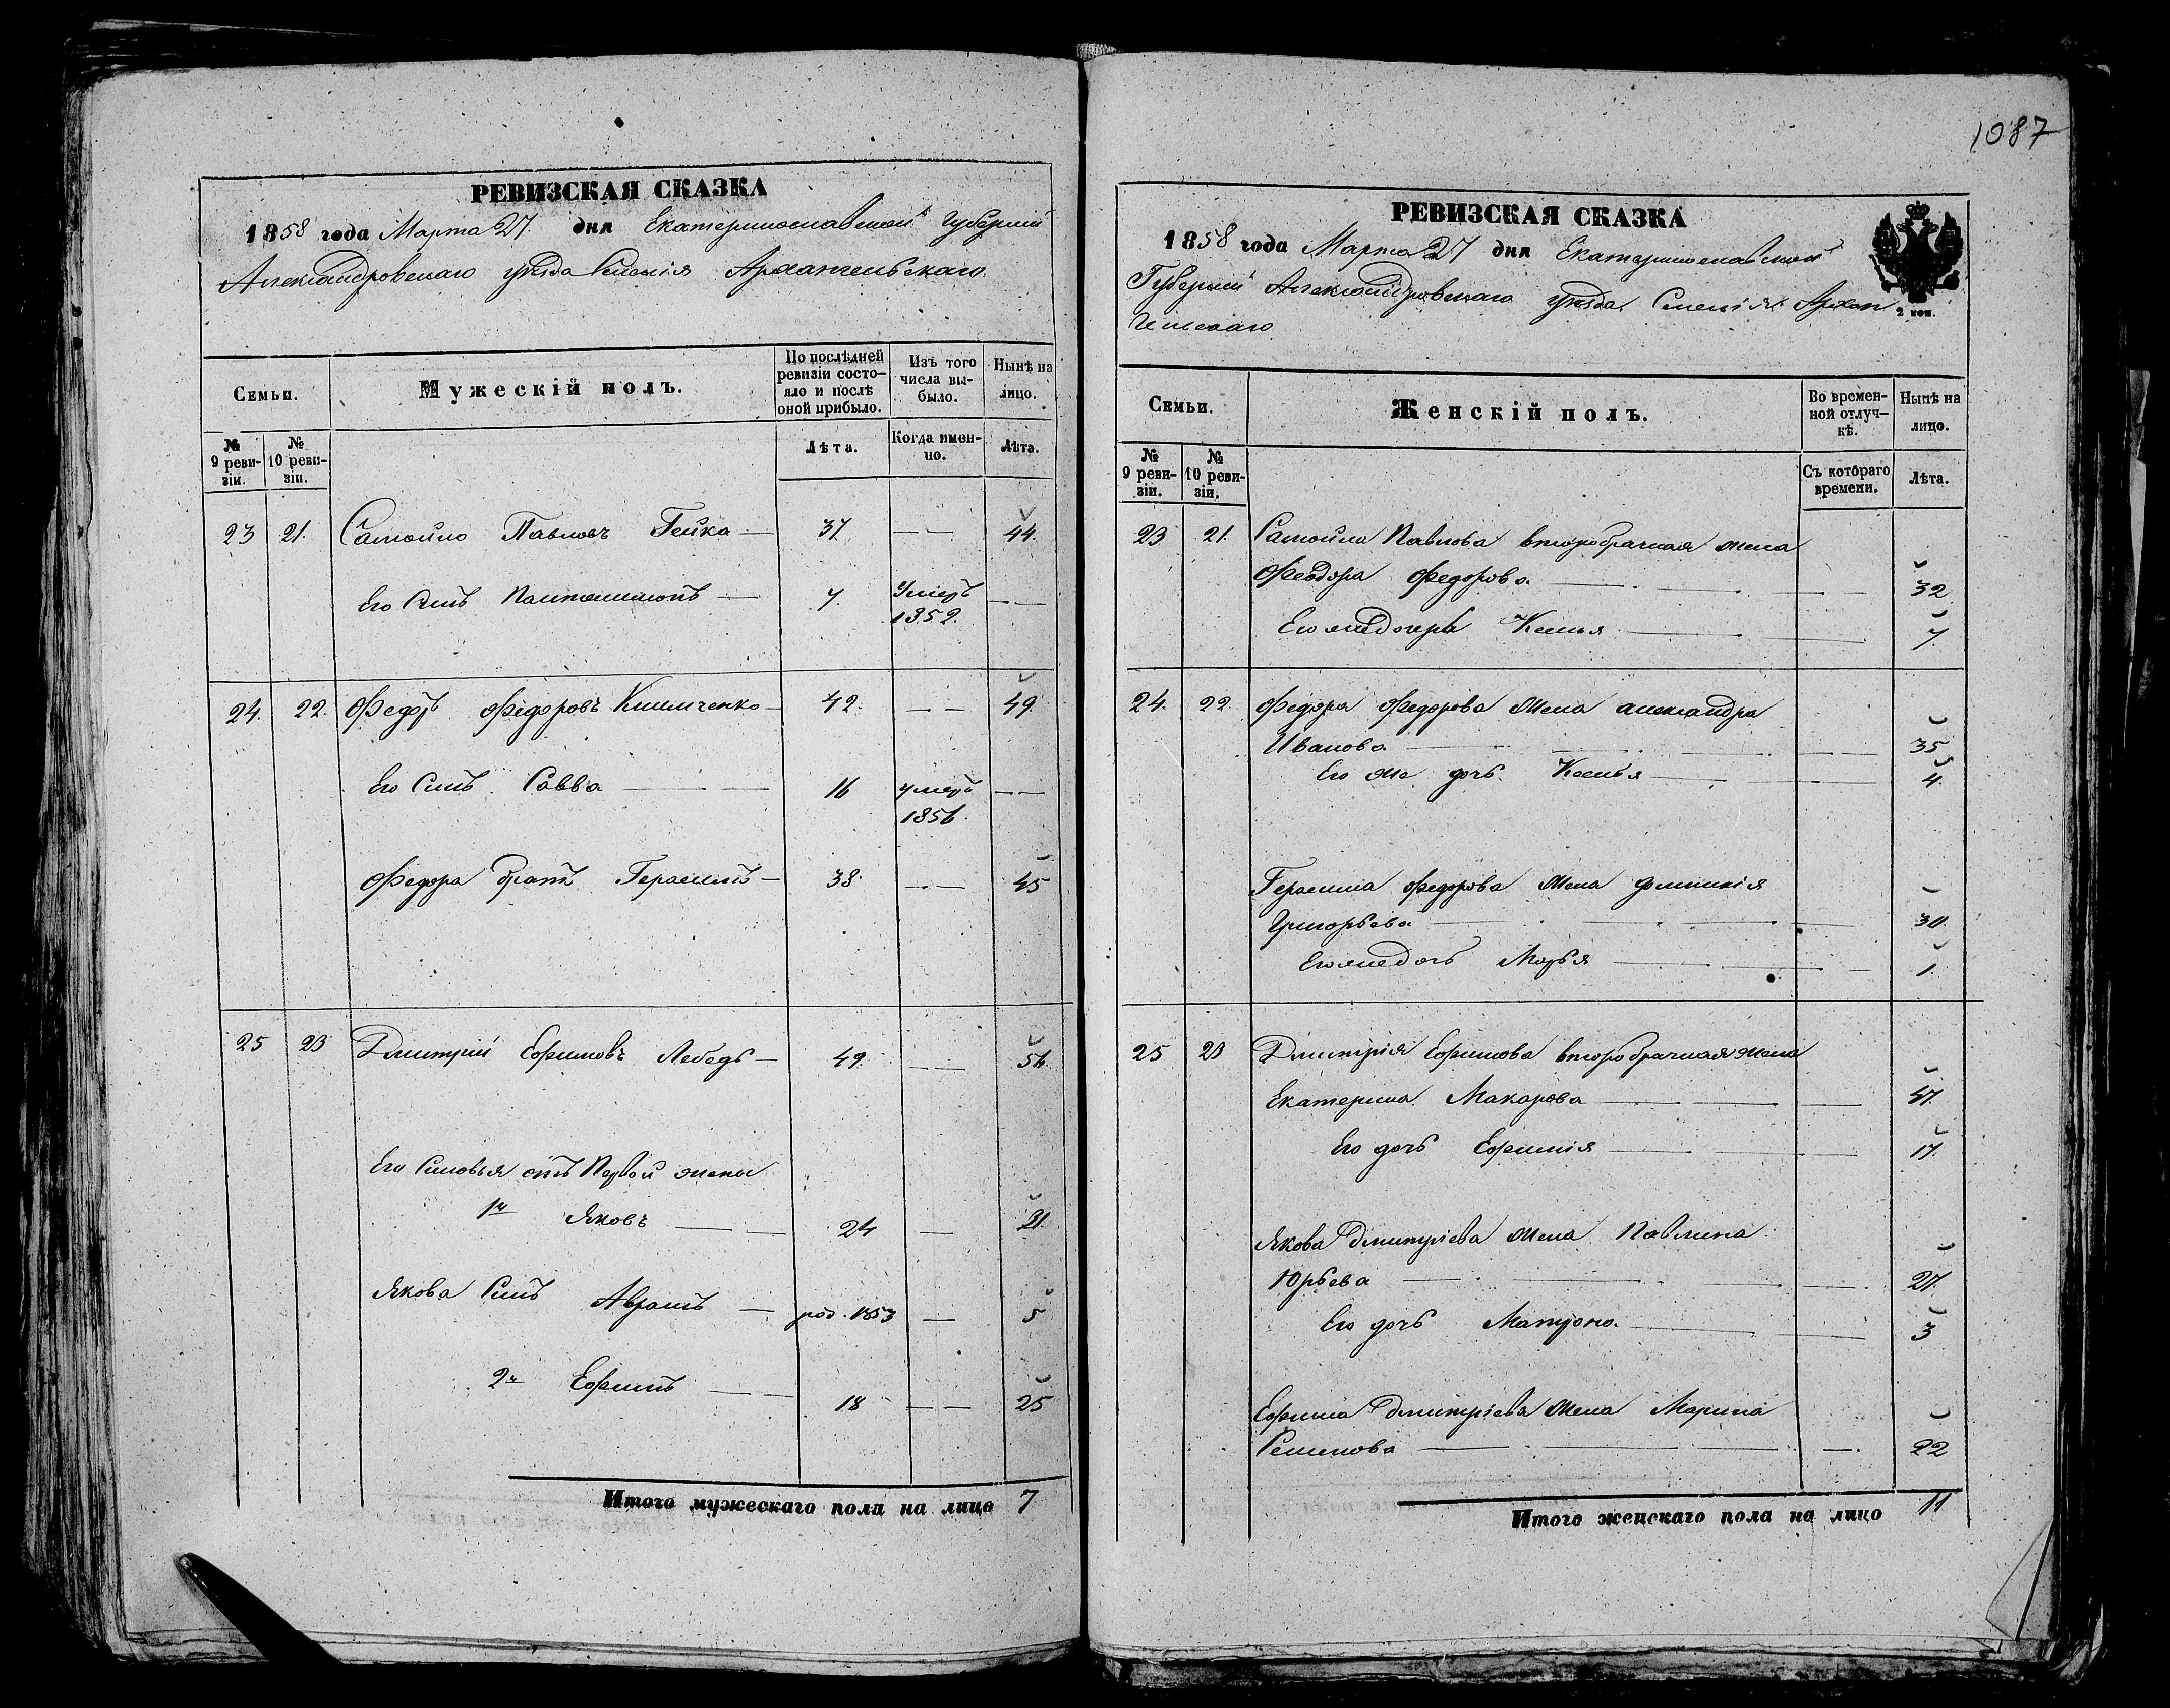 РЕВИЗСКАЯ СКАЗКА
1858 года Марта 27. дня Екатеринославской Губерніи
Александровскаго уѣзда Селенія Архангельскаго
Семьи.
Мужескій полъ.
По послѣдней ревизіи состо-
яло и послѣ оной прибыло.
Изъ того числа вы-
было.
Нынѣ на лицо.
№ 9 реви-
зіи.
№ 10 реви-
зіи.
Лѣта.
Когда имен-
но.
Лѣта.
23 21. Самойло Павловъ Гейка 37 44.
Его Сынъ Пантелимонъ 7. Умеръ
1852.
24. 22. Федоръ Федоровъ Клименко 42. 49.
Его Сынъ Савва 16 умеръ
1856.
Федора братъ Герасимъ 38. 45
25 23 Дмитрій Ефимовъ Лебедь 49. 56.
Его Сыновья отъ Первой жены
1й Яковъ 24 31.
Якова Сынъ Аврамъ род. 1853 5
2й Ефимъ 18 25
Итого мужескаго пола на лицо 7
1087
РЕВИЗСКАЯ СКАЗКА
1858 года Марта 27 дня Екатеринославской
Губерніи Александровскаго уѣзда Селенія Архан
гельскаго
2 коп.
Семьи.
Женскій полъ.
Во времен-
ной отлуч-
кѣ.
Нынѣ на лицо.
№ 9 реви-
зіи.
№ 10 реви-
зіи.
Съ котораго времени.
Лѣта.
23 21. Самойла Павлова второбрачная жена
Феодора Федорова 32
Его же дочерь Ксенья 7.
24. 22. Федора Федорова Жена александра
Иванова 35
Его же дочь Ксенья 4.
Герасима Федорова Жена
Григорьева 30.
Его же дочь Марья 1.
25 23 Дмитрія Ефимова второбрачная жена
Екатерина Макарова 47.
Его дочь Ефимія 17.
Якова Дмитріева жена Павлина
Юрьева 27.
Его дочь Матрона 3
Ефима Дмитріева Жена Марина
Семенова 22
Итого женскаго пола на лицо 11